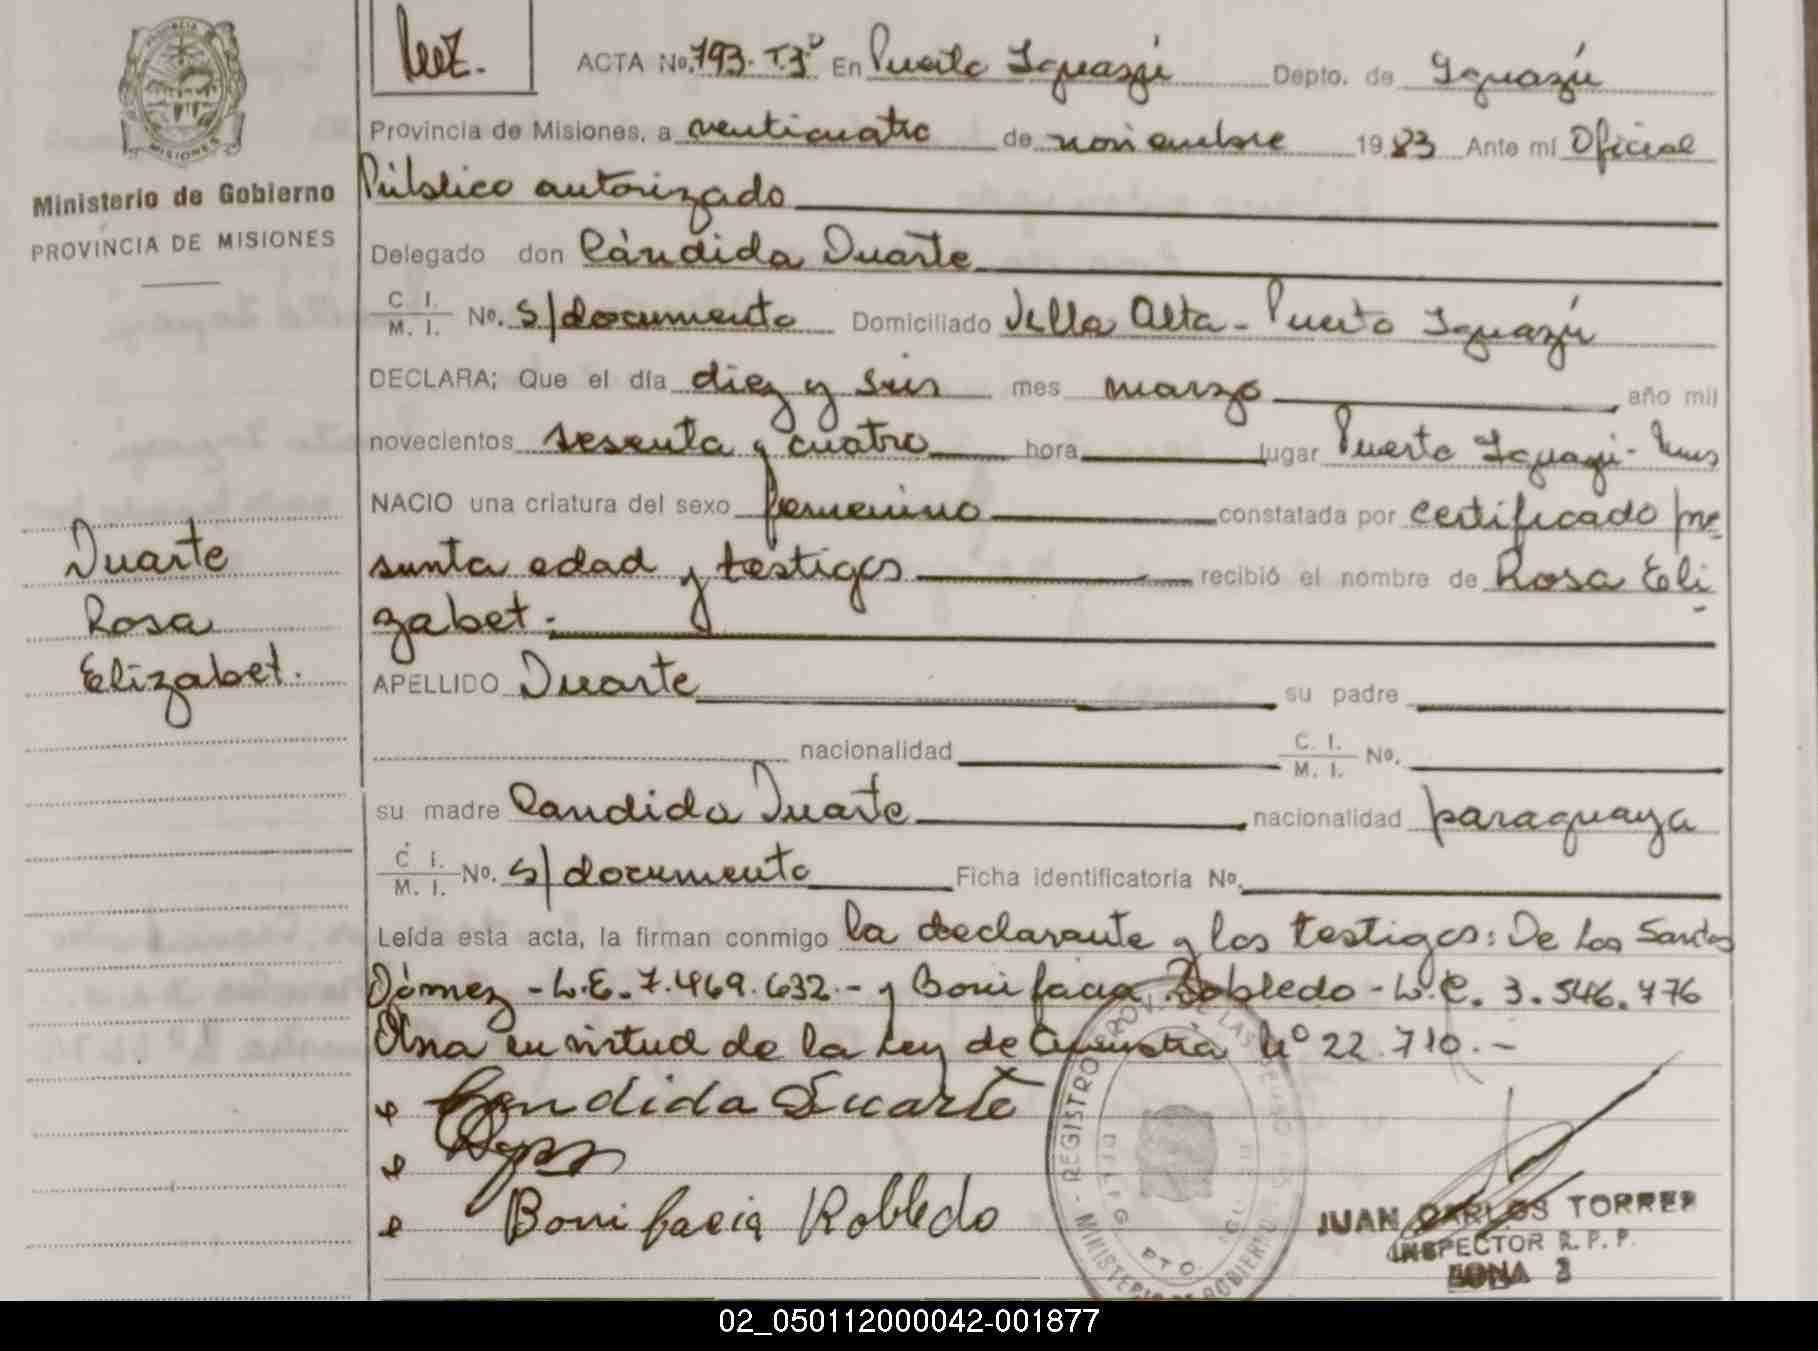 ACTA No. 793. T.3º En Puerto Iguazú Depto. de Iguazú
Provincia de Misiones, a venticuatro de noviembre 1983 Ante mí Oficial
Público autorizado
Ministerio de Gobierno
PROVINCIA DE MISIONES
Delegado don Cándida Duarte
C. I. M. I. No. s/documento Domiciliado Villa Alta - Puerto Iguazú
DECLARA; Que el día diez y seis mes marzo año mil
novecientos sesenta y cuatro hora lugar Puerto Iguazú -
NACIO una criatura del sexo femenino constatada por certificado pre
sunta edad y testigos recibió el nombre de Rosa Eli-
zabet.
Duarte
Rosa
Elizabet.
APELLIDO Duarte su padre
nacionalidad C. I. M. I. No.
su madre Candida Duarte nacionalidad paraguaya
C. I. M. I. No. s/documento Ficha identificatoria No.
Leída esta acta, la firman conmigo la declarante y los testigos: De Los Santos
- L.E. 7.469.632.- y Bonifacia Robledo - L.C. 3.546.776
en virtud de la Ley de Amnistía Nº 22.710.-
Candida Duarte
Bonifacia Robledo
JUAN CARLOS TORRES
INSPECTOR R. P. P.
ZONA 3
MISIONES
02_050112000042-001877